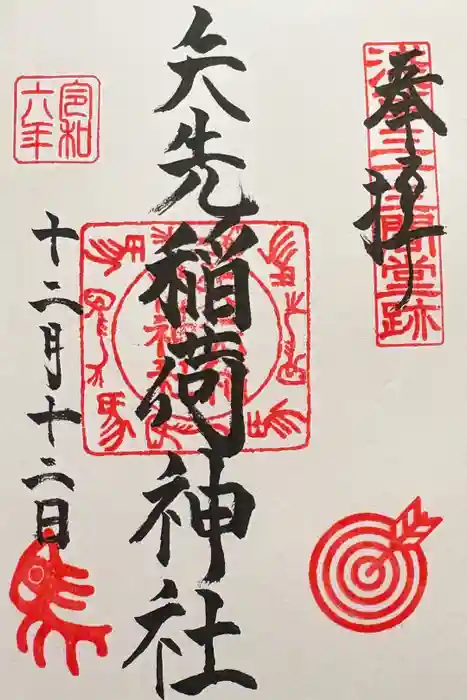 奉拝
浅草三十三間堂跡
矢先稲荷神社
令和
六年
十二月十二日